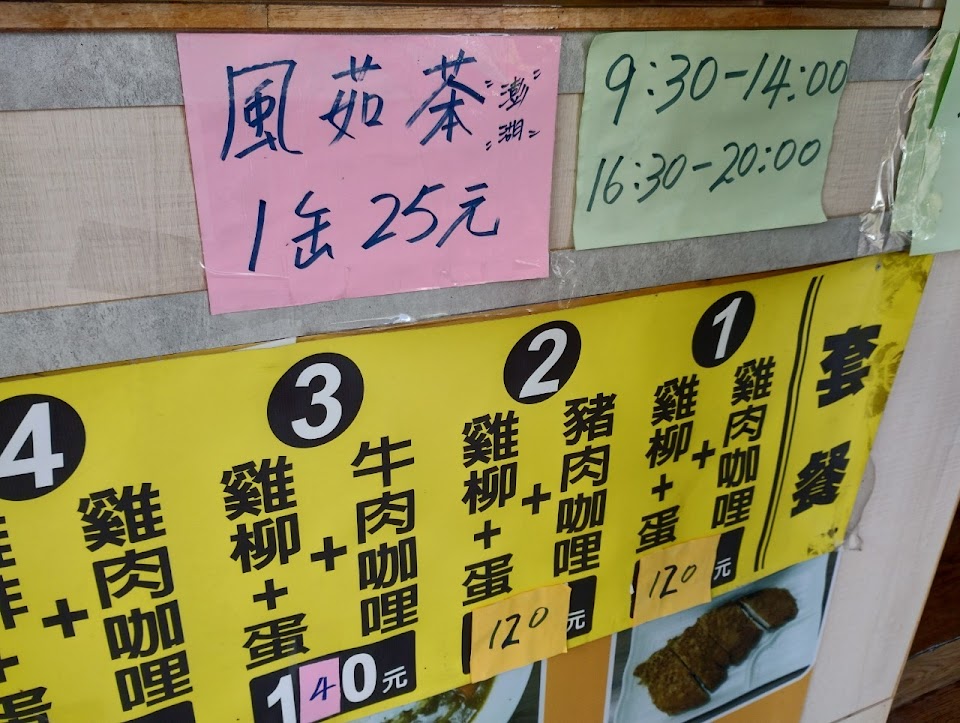 風茹茶
"澎湖"
1缶25元
9:30-14:00
16:30-20:00
套餐
1
雞肉咖哩
+
雞柳+蛋
120元
2
豬肉咖哩
+
雞柳+蛋
120元
3
牛肉咖哩
+
雞柳+蛋
140元
4
雞肉咖哩
+